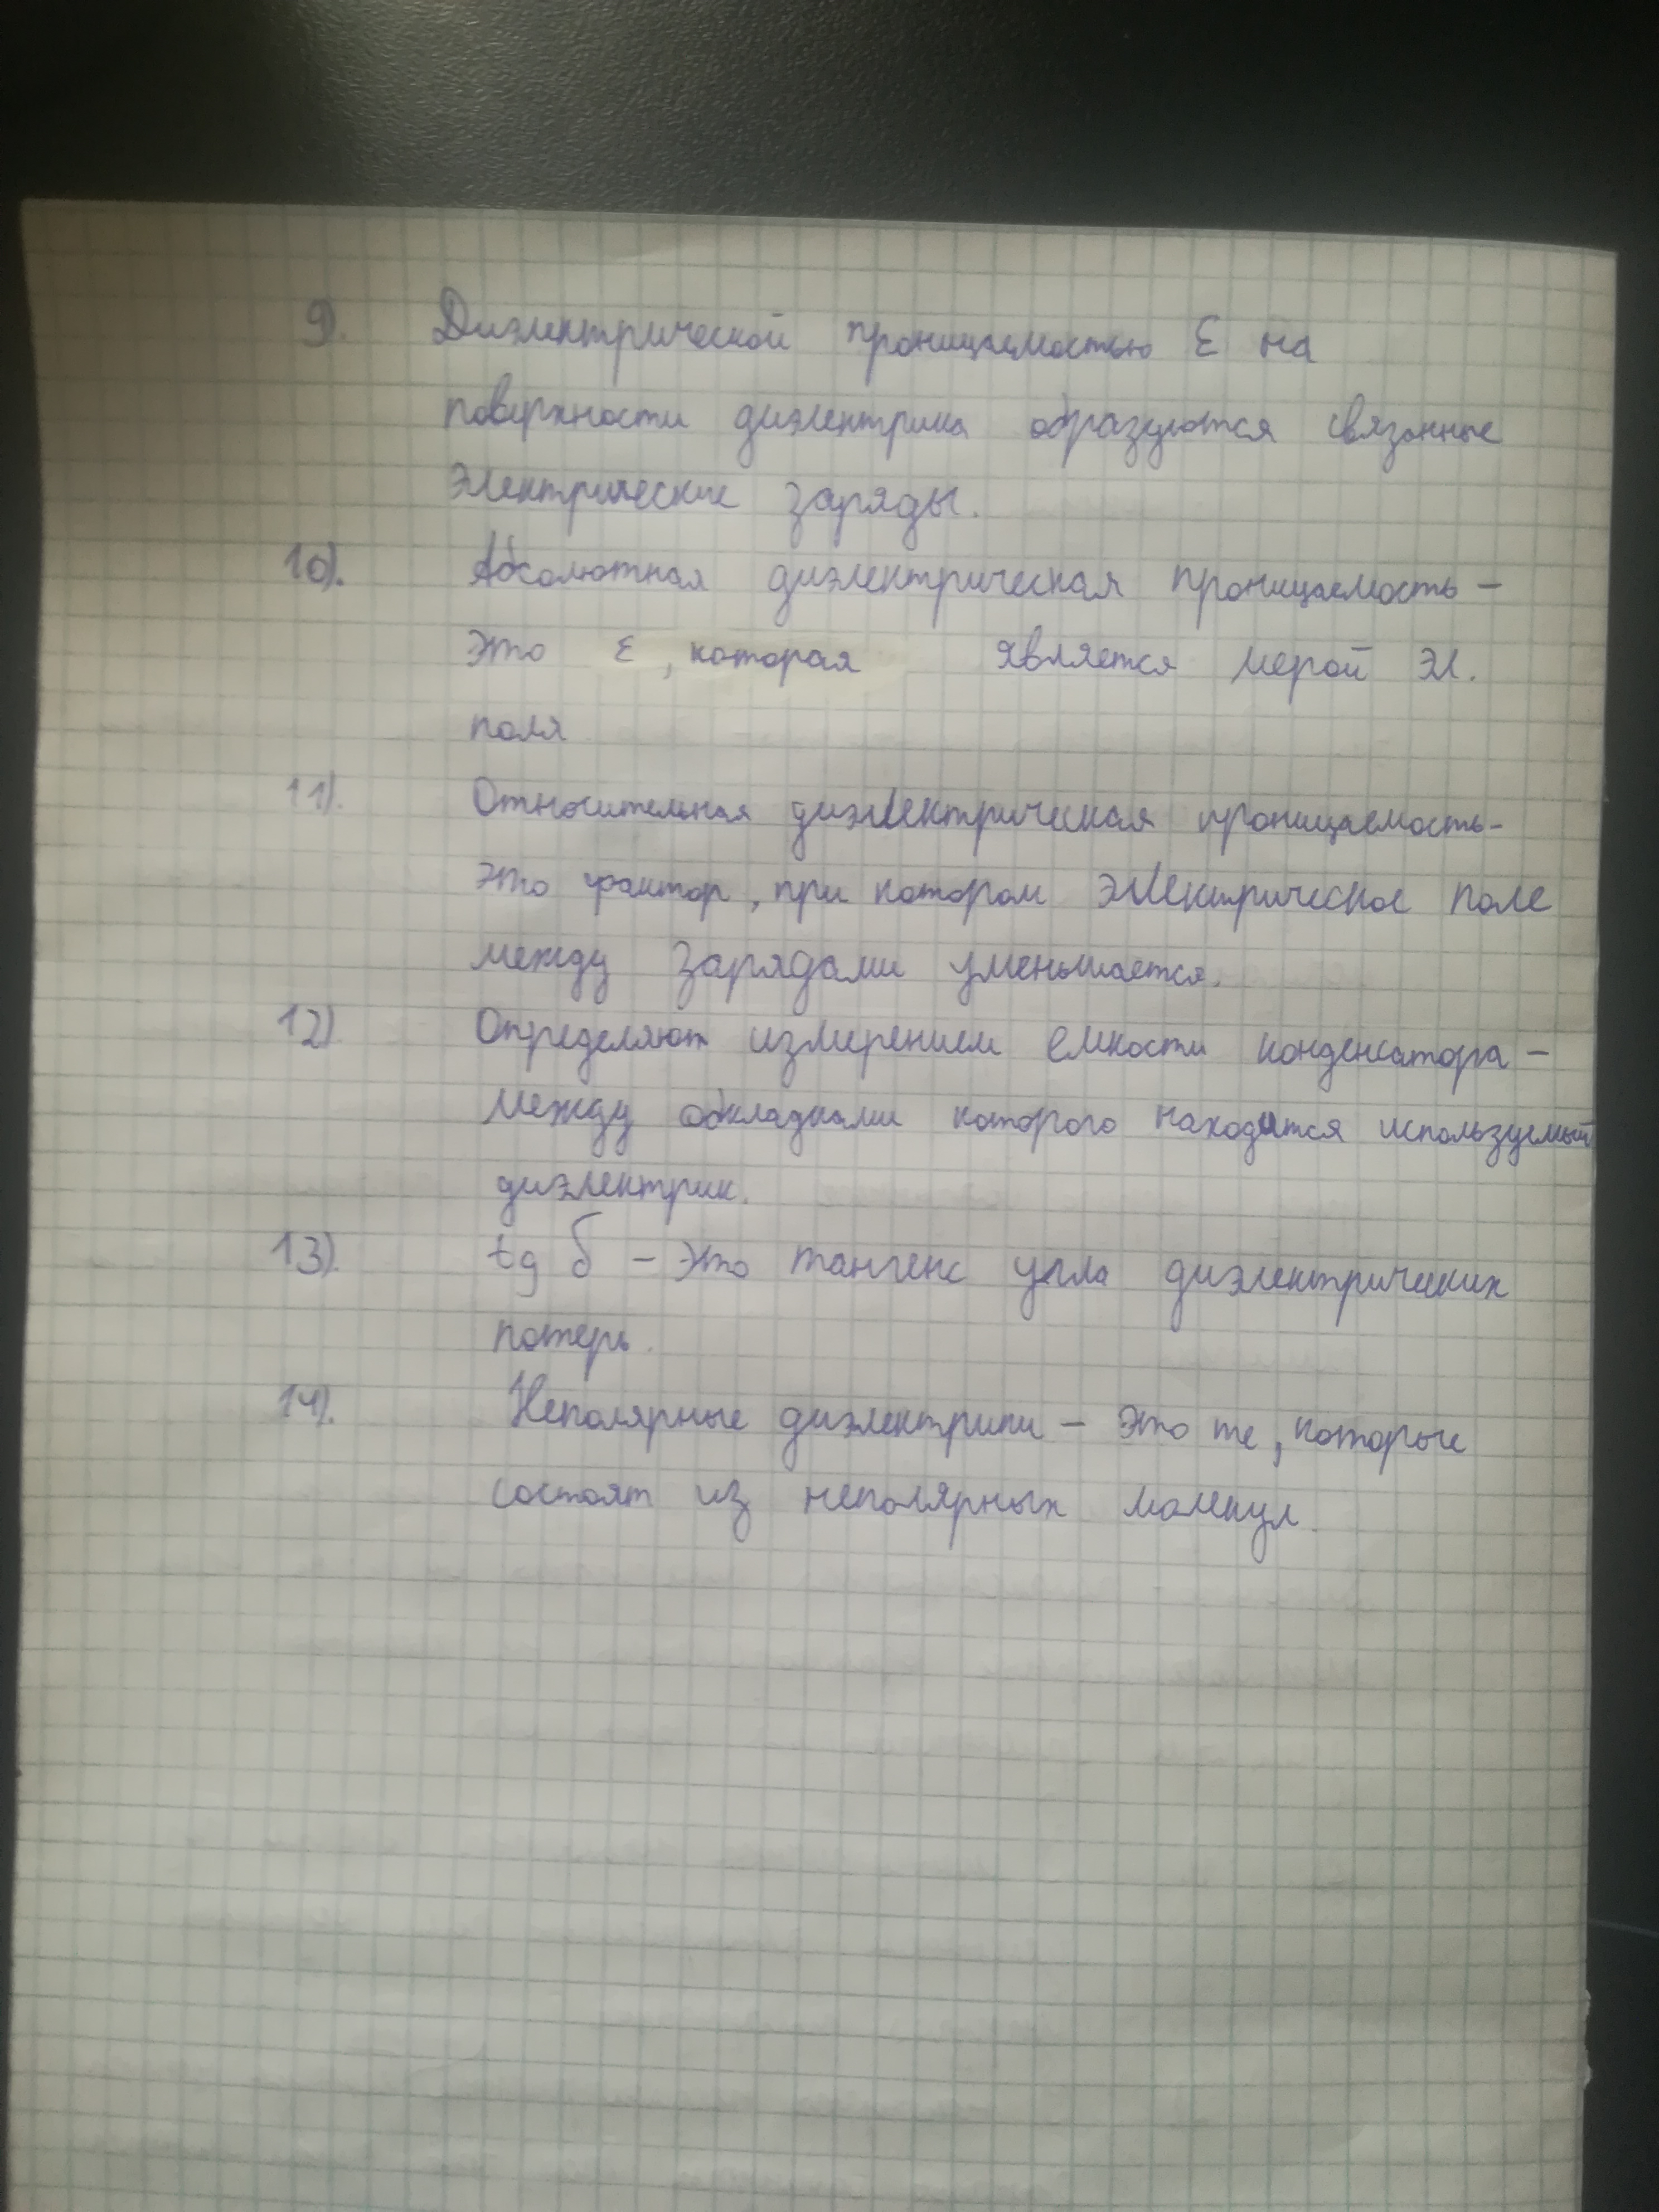 9). Диэлектрической проницаемостью ε на
поверхности диэлектрика образуются связанные
электрические заряды.
10). Абсолютная диэлектрическая проницаемость –
это ε, которая является мерой эл.
поля
11). Относительная диэлектрическая проницаемость-
это фактор, при котором электрическое поле
между зарядами уменьшается.
12) Определяют измерением емкости конденсатора –
между обкладками которого находится используемый
диэлектрик.
13). tg δ – это тангенс угла диэлектрических
потерь.
14). Неполярные диэлектрики – это те, которые
состоят из неполярных молекул.